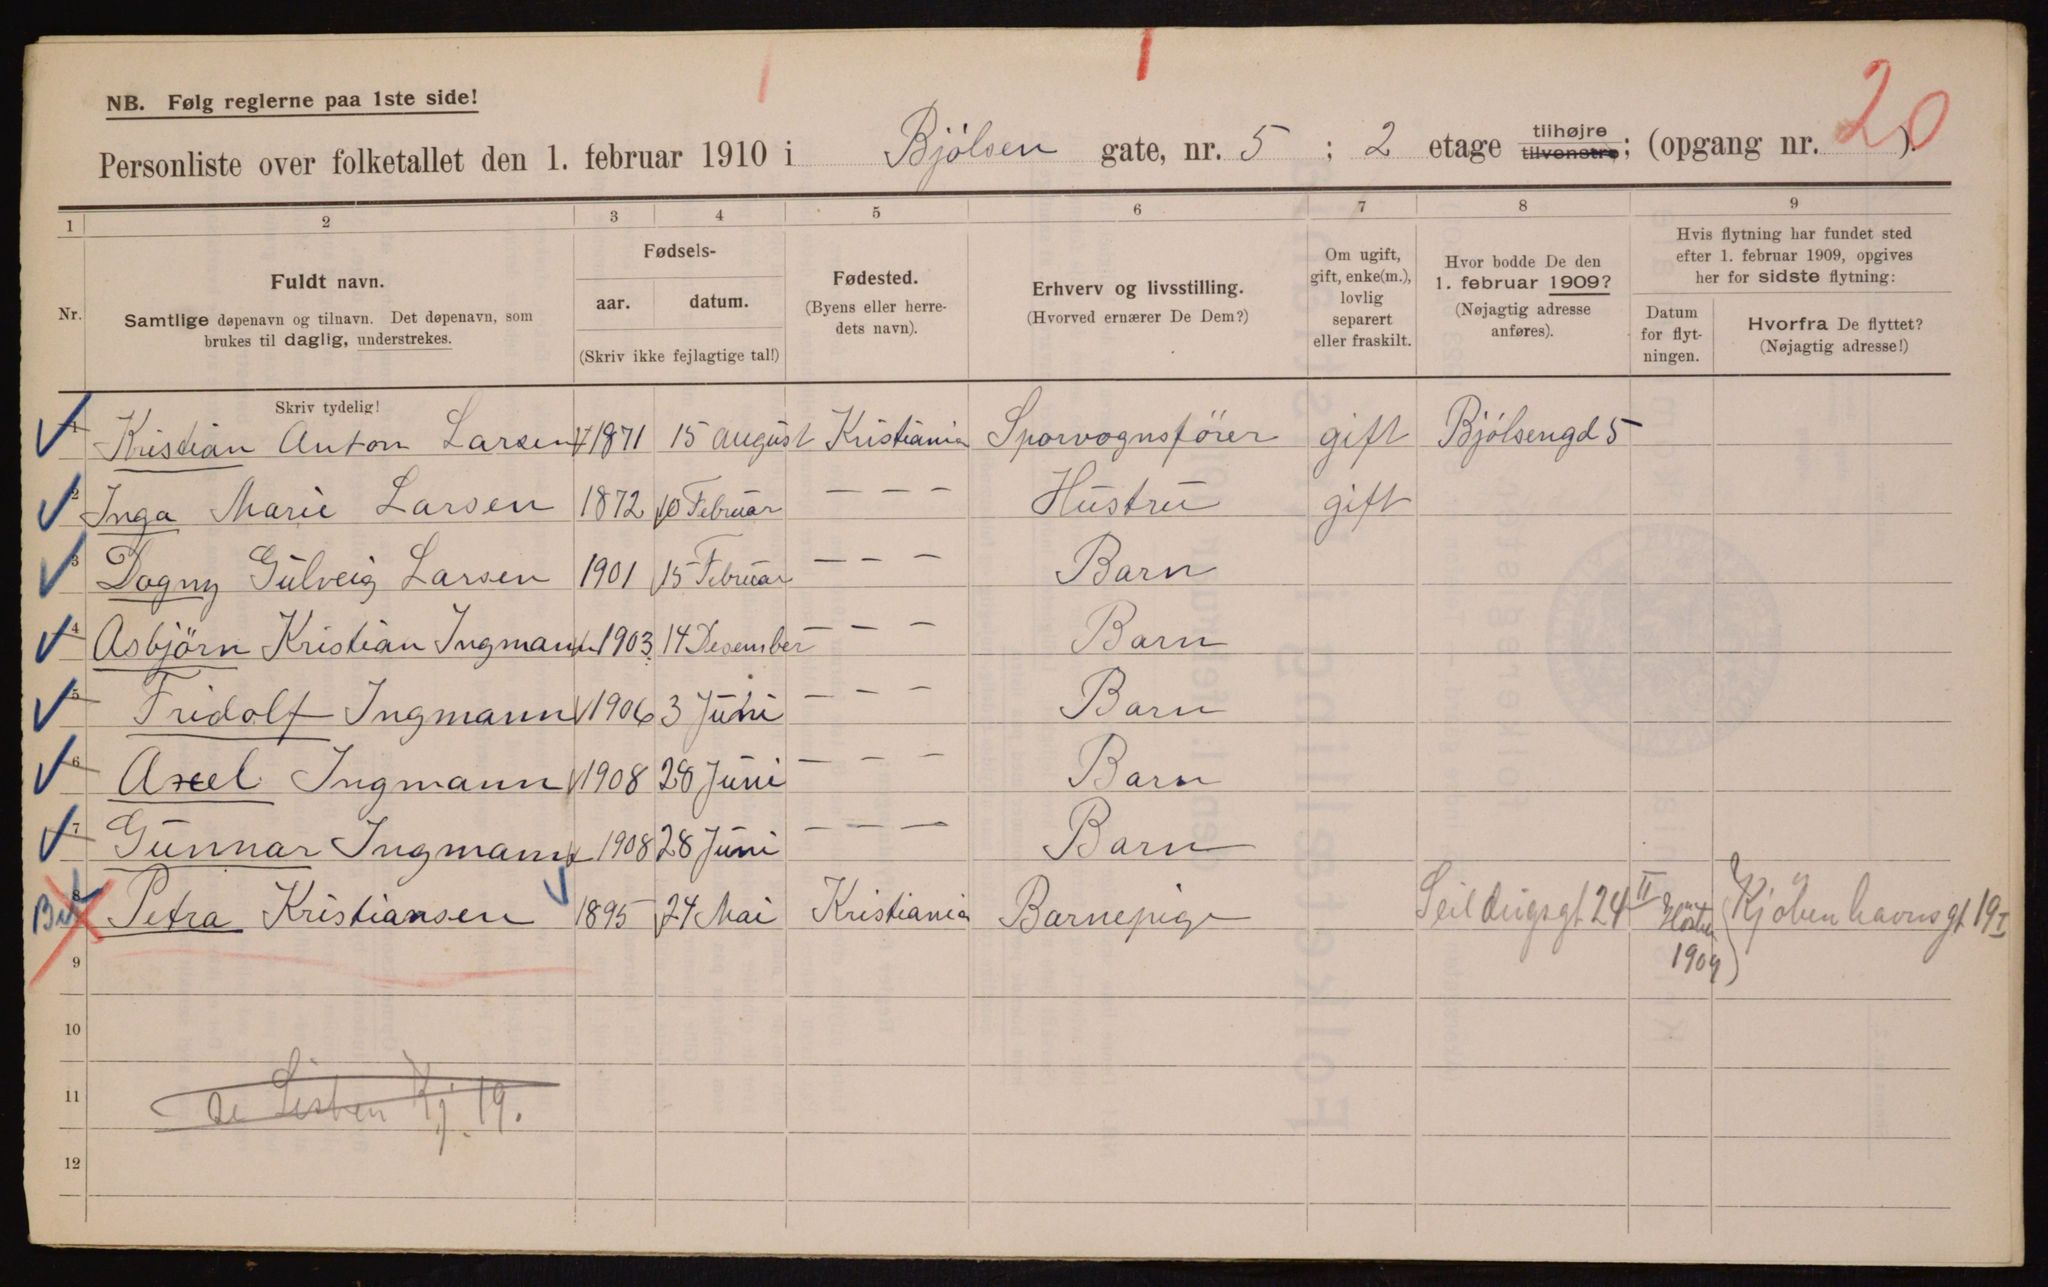 NB. Følg reglerne paa 1ste side!
20
Personliste over folketallet den 1. februar 1910 i Bjølsen gate, nr. 5 ; 2 etage tilhøjre tilvenstre; (opgang nr. ).
1 2 3 4 5 6 7 8 9
Nr.
Fuldt navn.
Samtlige døpenavn og tilnavn. Det døpenavn, som
brukes til daglig, understrekes.
Skriv tydelig!
Fødsels-
aar. datum.
(Skriv ikke fejlagtige tal!)
Fødested.
(Byens eller herre-
dets navn).
Erhverv og livsstilling.
(Hvorved ernærer De Dem?)
Om ugift,
gift, enke(m.),
lovlig
separert
eller fraskilt.
Hvor bodde De den
1. februar 1909?
(Nøjagtig adresse
anføres).
Hvis flytning har fundet sted
efter 1. februar 1909, opgives
her for sidste flytning:
Datum
for flyt-
ningen.
Hvorfra De flyttet?
(Nøjagtig adresse!)
1 Kristian Anton Larsen 1871 15 august Kristiania Sporvognsförer gift Bjölsengd 5
2 Inga Marie Larsen 1872 10 Februar — — — Hustru gift
3 Dagny Gulveig Larsen 1901 15 Februar — — — Barn
4 Asbjörn Kristian Ingmann 1903 14 Desember — — — Barn
5 Fridolf Ingmann 1906 3 Juni — — — Barn
6 Axel Ingmann 1908 28 Juni — — — Barn
7 Gunnar Ingmann 1908 28 Juni — — — Barn
8 Petra Kristiansen 1895 24 Mai Kristiania Barnepige Seildugsgt 24 II Høsten 1909 Kjöbenhavnsgt 19 I
9
10
11 se Listen Kj. 19.
12